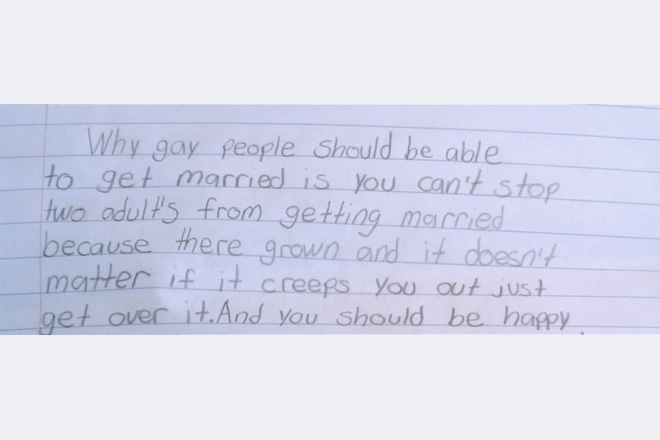 Why gay people should be able
to get married is you can't stop
two adult's from getting married
because there grown and it doesn't
matter if it creeps you out just
get over it. And you should be happy